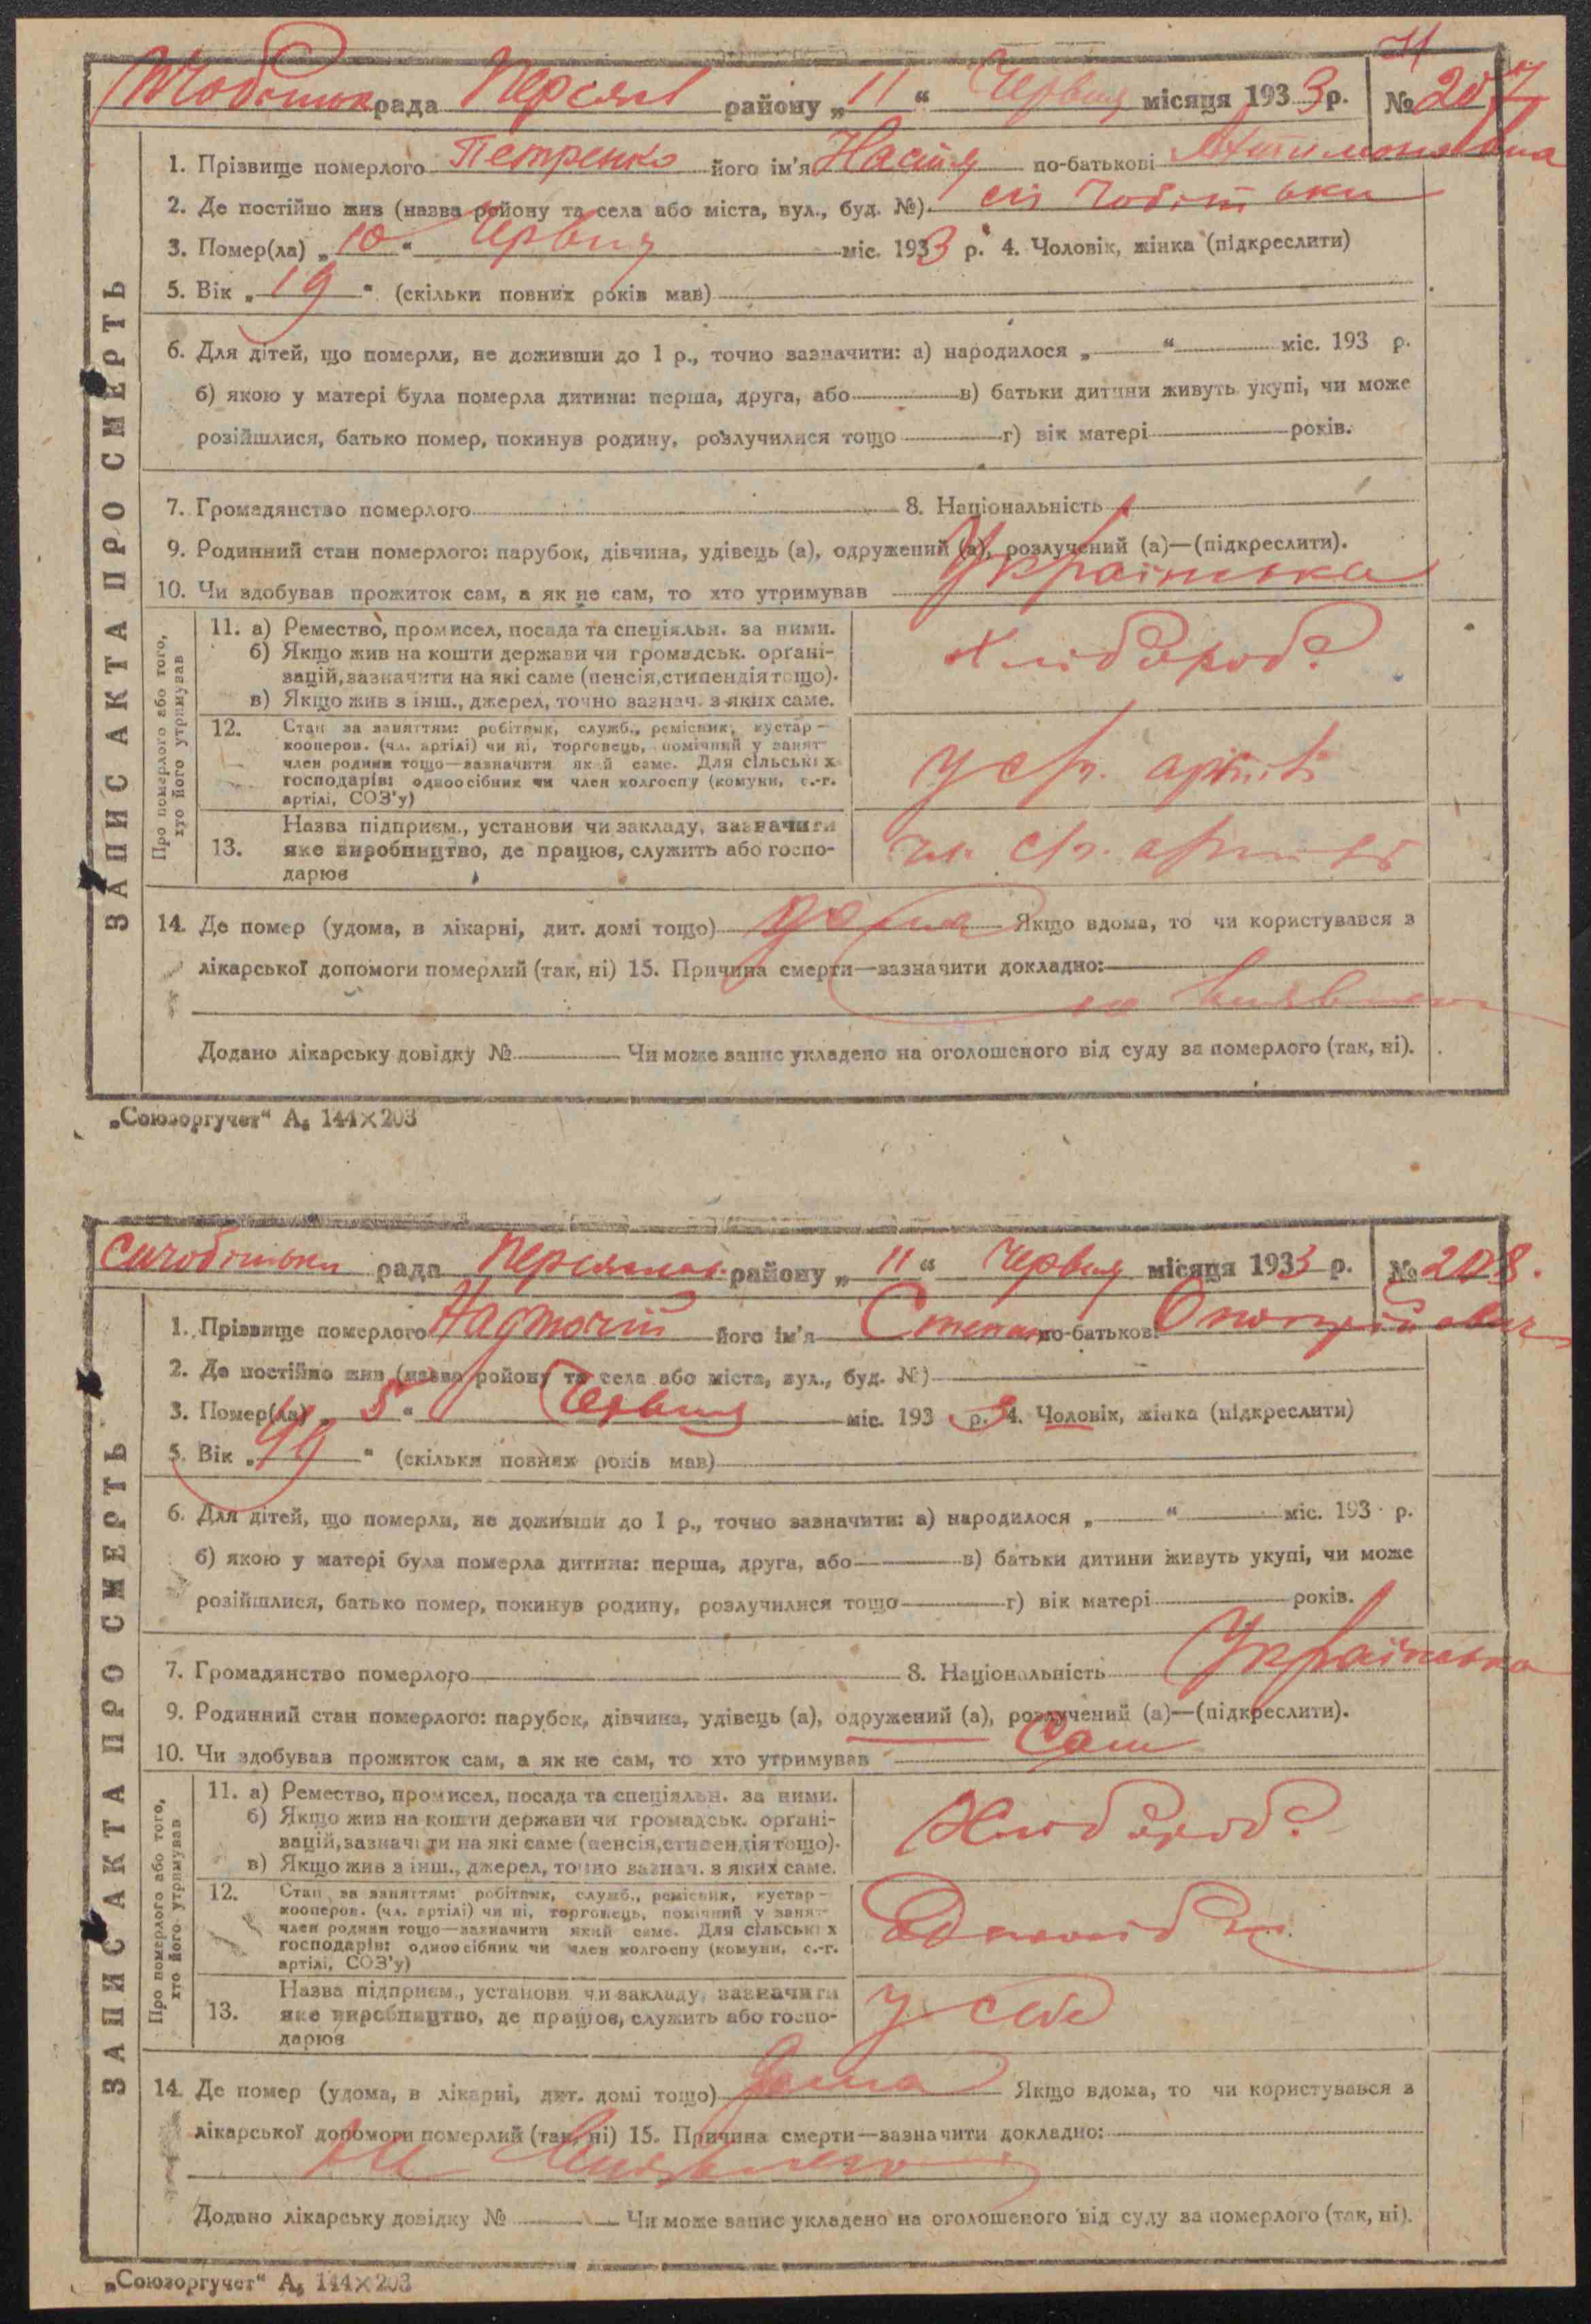 рада район у „11“ Червня місяця 1933 р. № 207
1. Прізвище померлого Петренко його ім'я Настя по-батькові
2. Де постійно жив (назва району та села або міста, вул., буд. №)
3. Помер(ла) „10“ Червня міс. 1933 р. 4. Чоловік, жінка (підкреслити)
5. Вік „19“ (скільки повних років мав)
6. Для дітей, що померли, не доживши до 1 р., точно зазначити: а) народилося „ “ міс. 193 р.
б) якою у матері була померла дитина: перша, друга, або в) батьки дитини живуть укупі, чи може
розійшлися, батько помер, покинув родину, розлучилися тощо г) вік матері років.
7. Громадянство померлого 8. Національність
9. Родинний стан померлого: парубок, дівчина, удівець (а), одружений (а), розлучений (а)—(підкреслити).
Українська
10. Чи здобував прожиток сам, а як не сам, то хто утримував
ЗАПИС АКТА ПРО СМЕРТЬ
Про померлого або того, хто його утримував
11. а) Ремество, промисел, посада та спеціяльн. за ними.
б) Якщо жив на кошти держави чи громадськ. орґані-
зацій, зазначити на які саме (пенсія, стипендія тощо).
в) Якщо жив з інш., джерел, точно зазнач. з яких саме.
Хлібороб
12. Стан за заняттям: робітник, служб., ремісник, кустар—
кооперов. (чл. артілі) чи ні, торговець, помічний у занят-
член родини тощо—зазначити який саме. Для сільських
господарів: одноосібник чи член колгоспу (комуни, с.-г.
артілі, СОЗ'у)
у с/г. артілі
13. Назва підприєм., установи чи закладу, зазначити
яке виробництво, де працюв, служить або госпо-
дарюв
чл. с/г. артілі
14. Де помер (удома, в лікарні, дит. домі тощо) дома Якщо вдома, то чи користувався з
лікарської допомоги померлий (так, ні) 15. Причина смерти—зазначити докладно:
не виявлено
Додано лікарську довідку № Чи може запис укладено на оголошеного від суду за померлого (так, ні).
„Союзоргучет“ А₅ 144×203
рада району „11“ Червня місяця 1933 р. № 208.
1. Прізвище померлого Надточій його ім'я Степан по-батькові
2. Де постійно жив (назва району та села або міста, вул., буд. №)
3. Помер(ла) „5“ Червня міс. 1933 р. 4. Чоловік, жінка (підкреслити)
5. Вік „ “ (скільки повних років мав)
6. Для дітей, що померли, не доживши до 1 р., точно зазначити: а) народилося „ “ міс. 193 р.
б) якою у матері була померла дитина: перша, друга, або в) батьки дитини живуть укупі, чи може
розійшлися, батько помер, покинув родину, розлучилися тощо г) вік матері років.
7. Громадянство померлого 8. Національність Українська
9. Родинний стан померлого: парубок, дівчина, удівець (а), одружений (а), розлучений (а)—(підкреслити).
10. Чи здобував прожиток сам, а як не сам, то хто утримував Сам
ЗАПИС АКТА ПРО СМЕРТЬ
Про померлого або того, хто його утримував
11. а) Ремество, промисел, посада та спеціяльн. за ними.
б) Якщо жив на кошти держави чи громадськ. орґані-
зацій, зазначити на які саме (пенсія, стипендія тощо).
в) Якщо жив з інш., джерел, точно зазнач. з яких саме.
Хлібороб
12. Стан за заняттям: робітник, служб., ремісник, кустар—
кооперов. (чл. артілі) чи ні, торговець, помічний у занят-
член родини тощо—зазначити який саме. Для сільських
господарів: одноосібник чи член колгоспу (комуни, с.-г.
артілі, СОЗ'у)
13. Назва підприєм., установи чи закладу, зазначити
яке виробництво, де працюв, служить або госпо-
дарюв
у себе
14. Де помер (удома, в лікарні, дит. домі тощо) дома Якщо вдома, то чи користувався з
лікарської допомоги померлий (так, ні) 15. Причина смерти—зазначити докладно:
не виявлено
Додано лікарську довідку № Чи може запис укладено на оголошеного від суду за померлого (так, ні).
„Союзоргучет“ А₅ 144×203